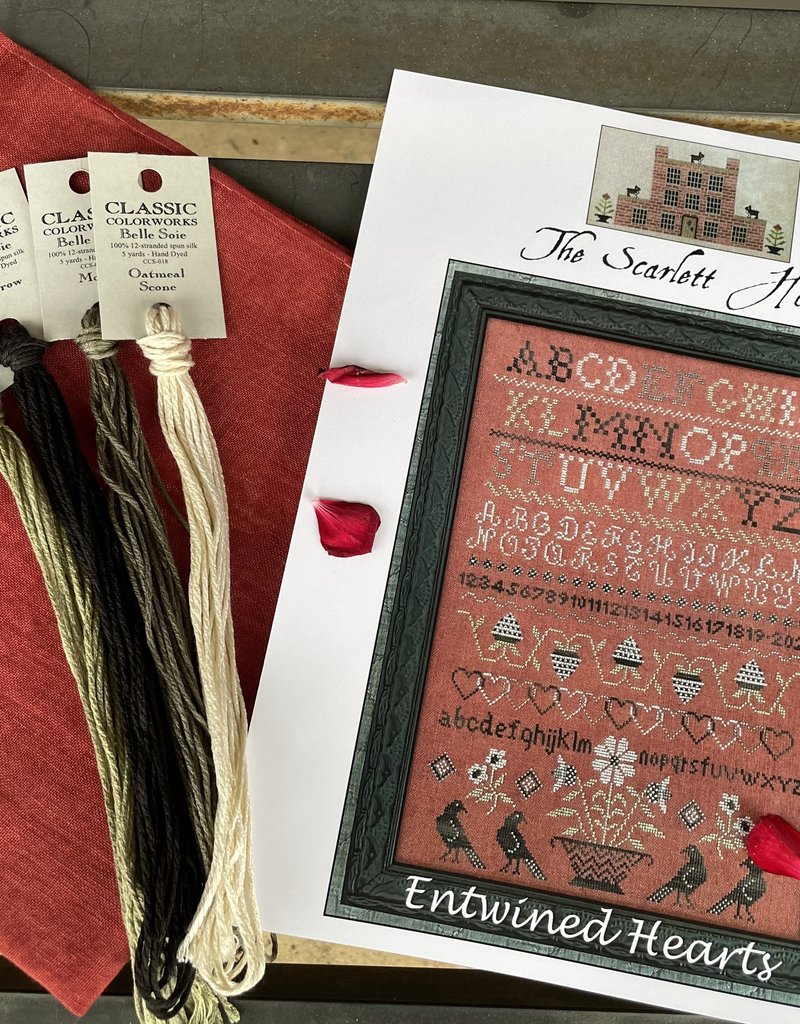 CLASSIC
COLORWORKS
Belle Soie
100% 12-stranded spun silk
5 yards - Hand Dyed
CCS-018
Oatmeal
Scone
CLAS
COLOR
Belle
100% 12-stran
5 yards -
CCS-
IC
RKS
oie
pun silk
Dyed
row
The Scarlett
ABCDEFGHI
KLMNOP
STUVWXYZ
1234567891011121314151617181920
abcdefghijklm
nopqrstuvwxyz
Entwined Hearts